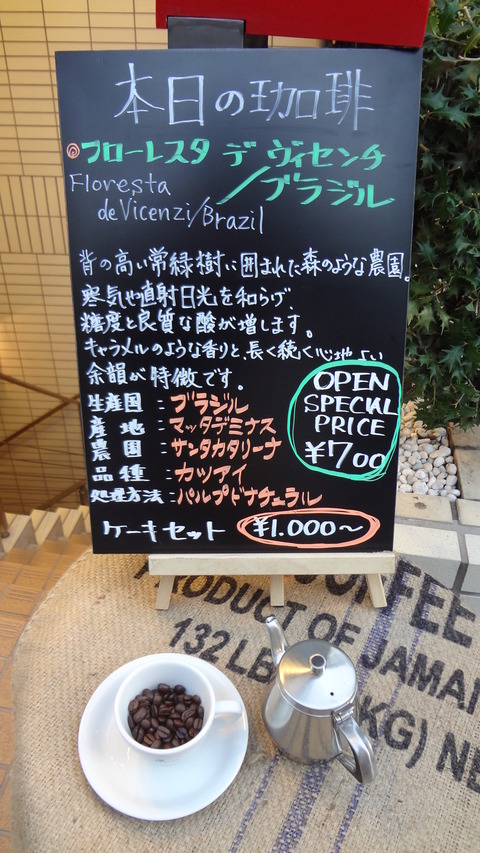 本日の珈琲
フローレスタ デ ヴィセンチ
/ブラジル
Floresta
de Vicenzi/Brazil
背の高い常緑樹に囲まれた森のような農園。
寒気や直射日光を和らげ、
糖度と良質な酸が増します。
キャラメルのような香りと、長く続く心地よい
余韻が特徴です。
生産国：ブラジル
産地：マッタデミナス
農園：サンタカタリーナ
品種：カツアイ
処理方法：パルプドナチュラル
OPEN
SPECKL
PRICE
¥700
ケーキセット ¥1.000～
COFFEE
PRODUCT OF JAMAI
132 LB
KG) NE